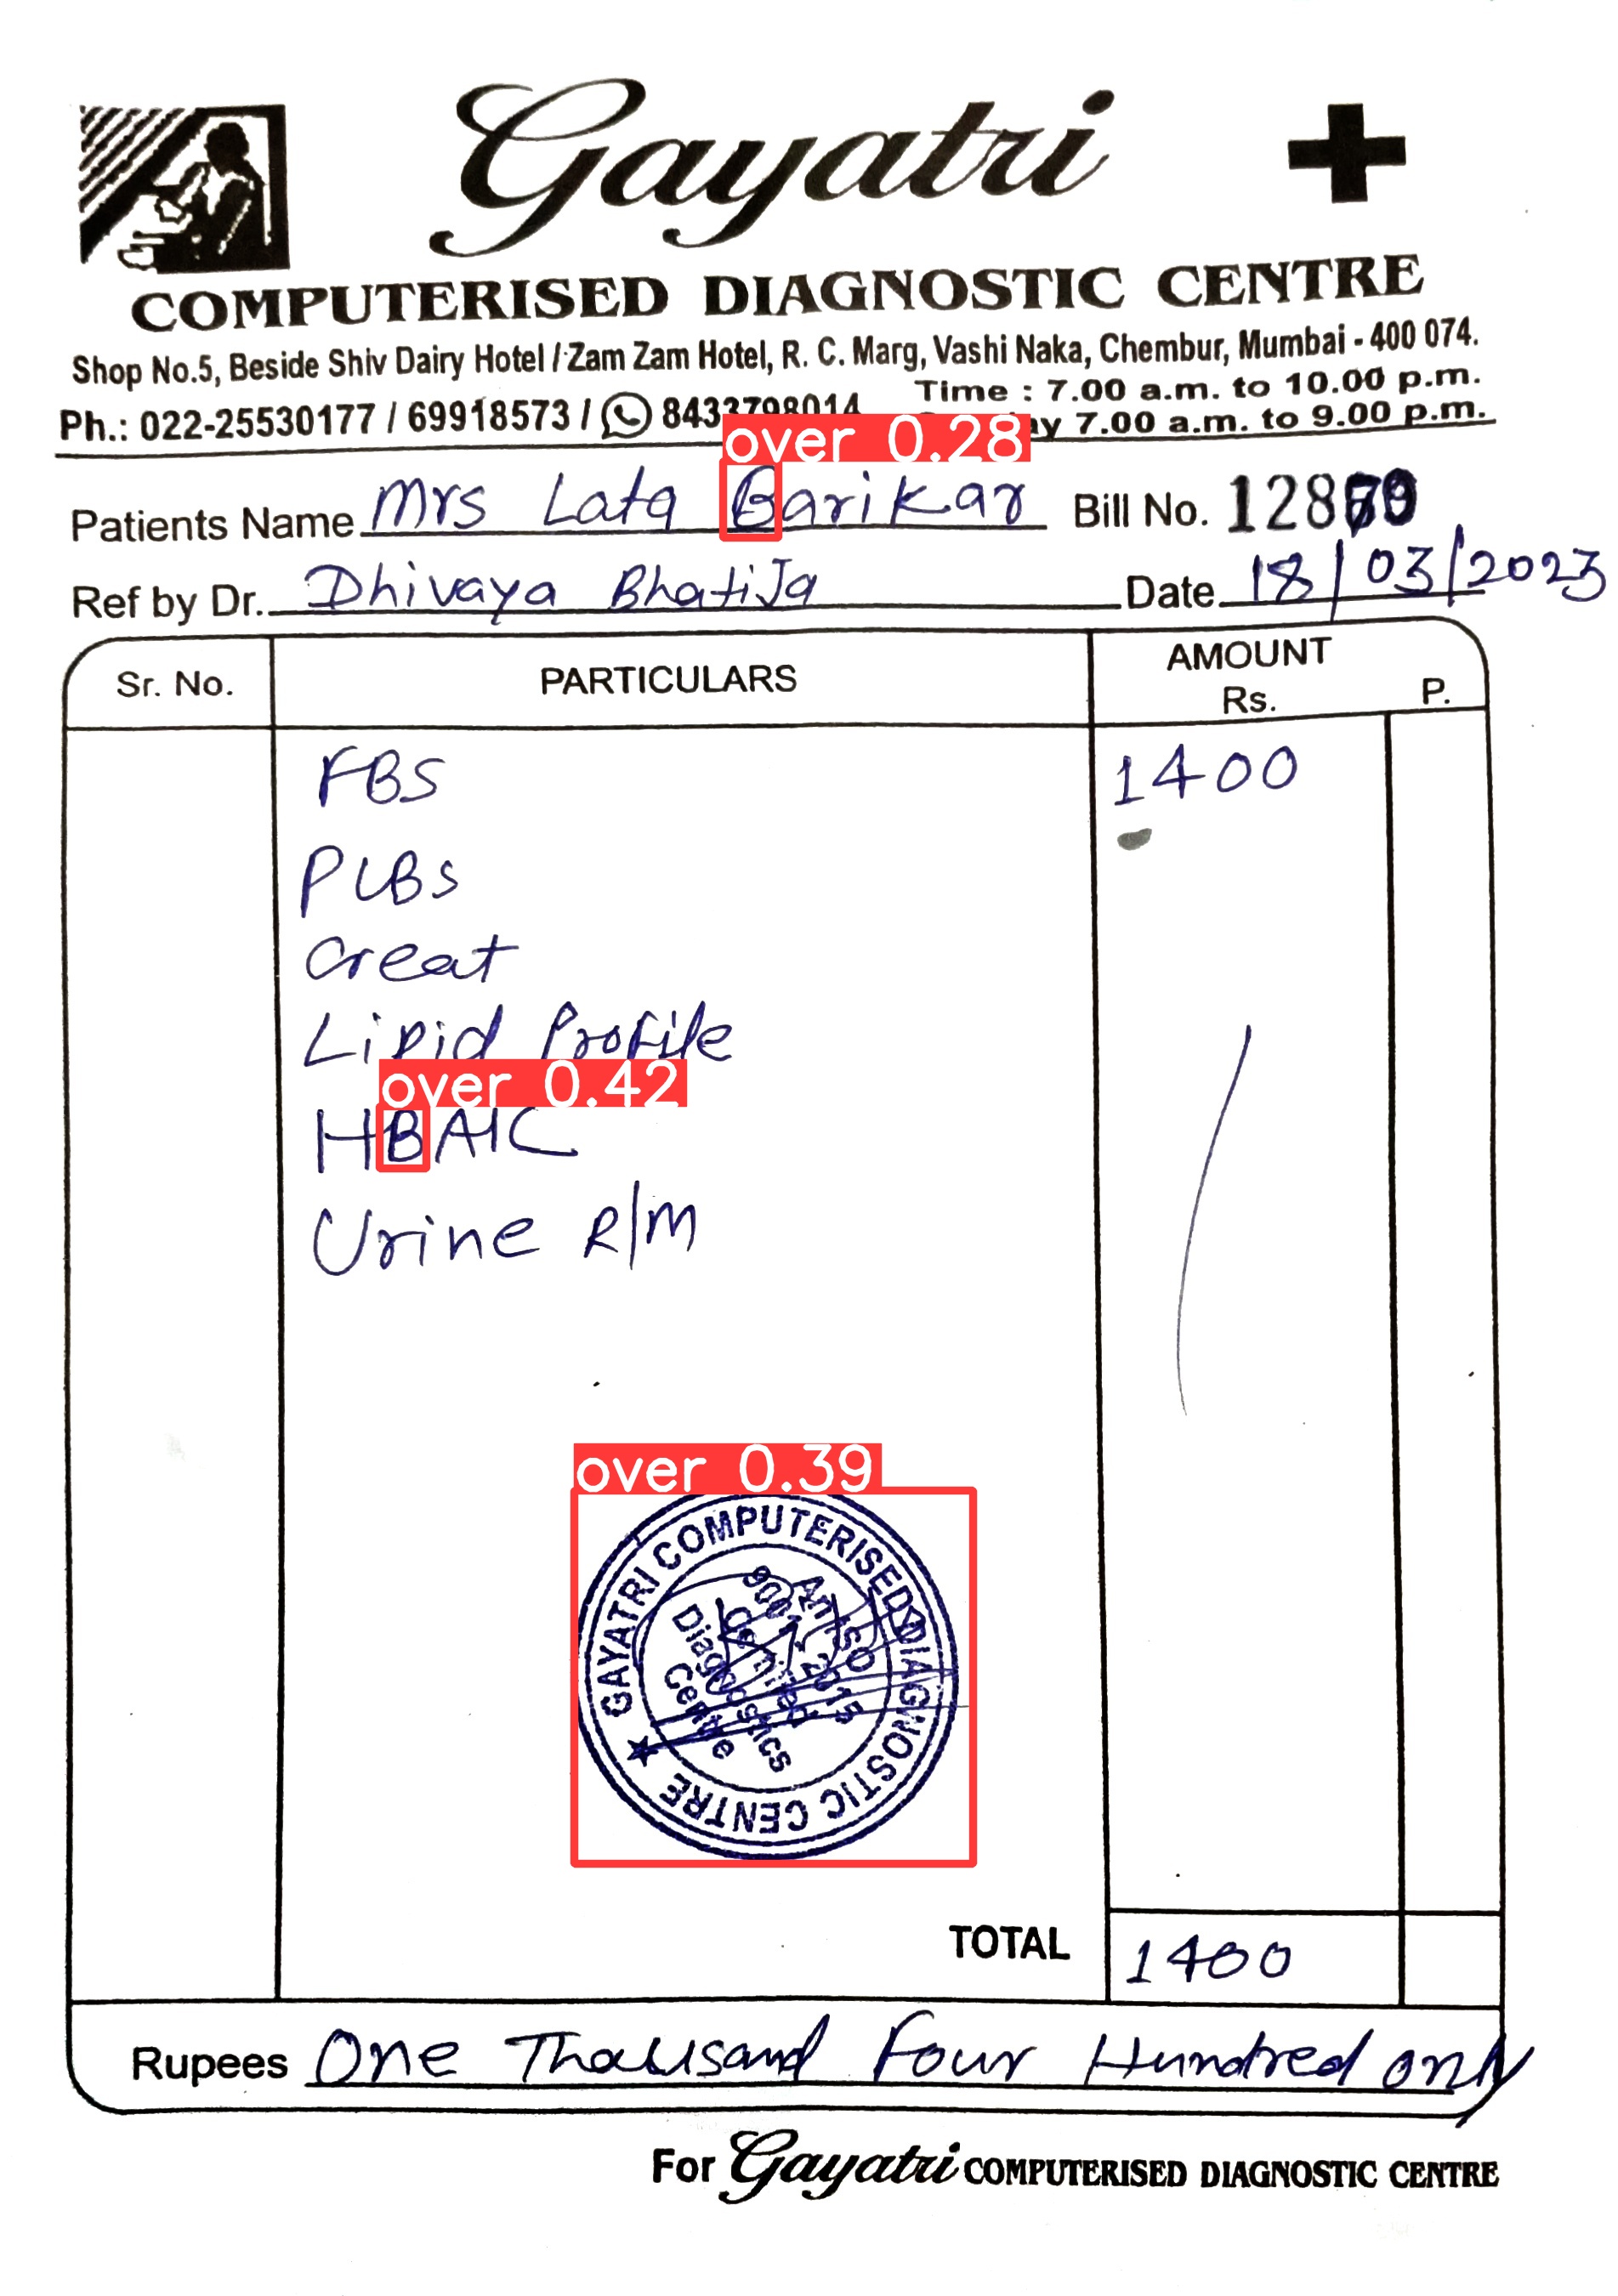 Gayatri
COMPUTERISED DIAGNOSTIC CENTRE
Shop No.5, Beside Shiv Dairy Hotel / Zam Zam Hotel, R. C. Marg, Vashi Naka, Chembur, Mumbai - 400 074.
Time : 7.00 a.m. to 10.00 p.m.
Ph.: 022-25530177 / 69918573 / 8433798014
7.00 a.m. to 9.00 p.m.
over 0.28
Patients Name Mrs Lata Barikar Bill No.
Ref by Dr. Dhivaya BhatiJa Date 18/03/2023
Sr. No. PARTICULARS AMOUNT Rs. P.
FBS 1400
PLBS
Creat
Lipid Profile
over 0.42
HBAIC
Urine R/M
over 0.39
GAYATRI COMPUTERISED DIAGNOSTIC CENTRE
An ISO
9001:2015
Diagnostics
Centre
TOTAL 1400
Rupees One Thousand Four Hundred only
For Gayatri COMPUTERISED DIAGNOSTIC CENTRE